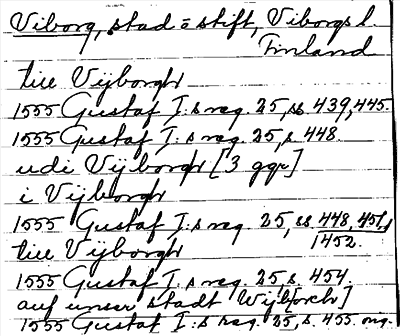 Viborg, stad o stift, Viborgs l.
Finland
till Vijborgh
1555 Gustaf I:s reg. 25, ss. 439, 445.
1555 Gustaf I:s reg. 25, s. 448.
udi Vijborgh [3 ggr]
i Vijborgh
1555 Gustaf I:s reg. 25, ss. 448, 451,
452.
till Vijborgh
1555 Gustaf I:s reg. 25, s. 454.
auf unser stadt Wijb[orch]
1555 Gustaf I:s reg. 25, s. 455